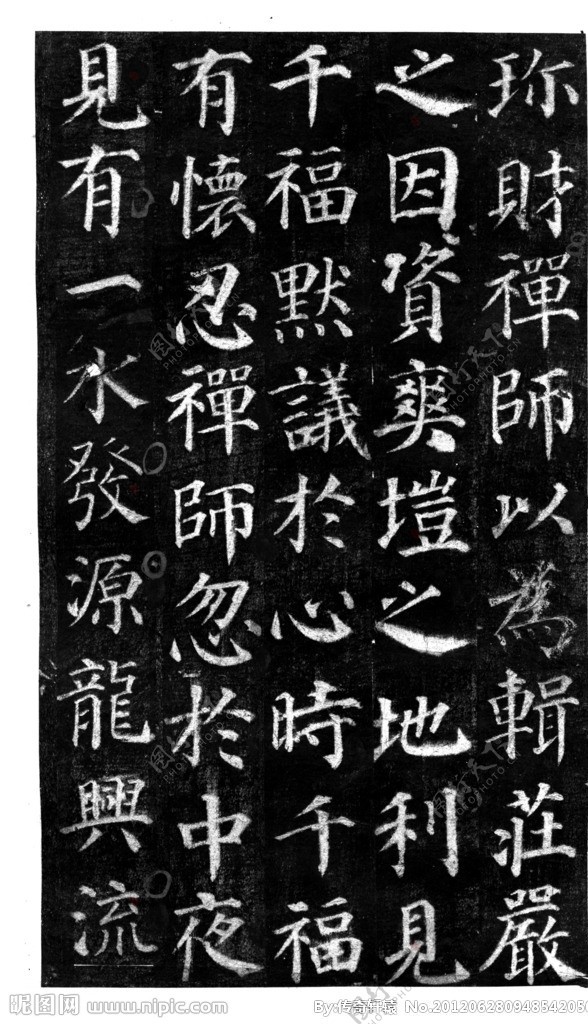 珎財禪師以為輯莊嚴
之因資爽塏之地利見
千福默議於心時千福
有懷忍禪師忽於中夜
見有一水發源龍興流
昵图网 www.nipic.com
By:传奇轩辕 No.20120628094854205